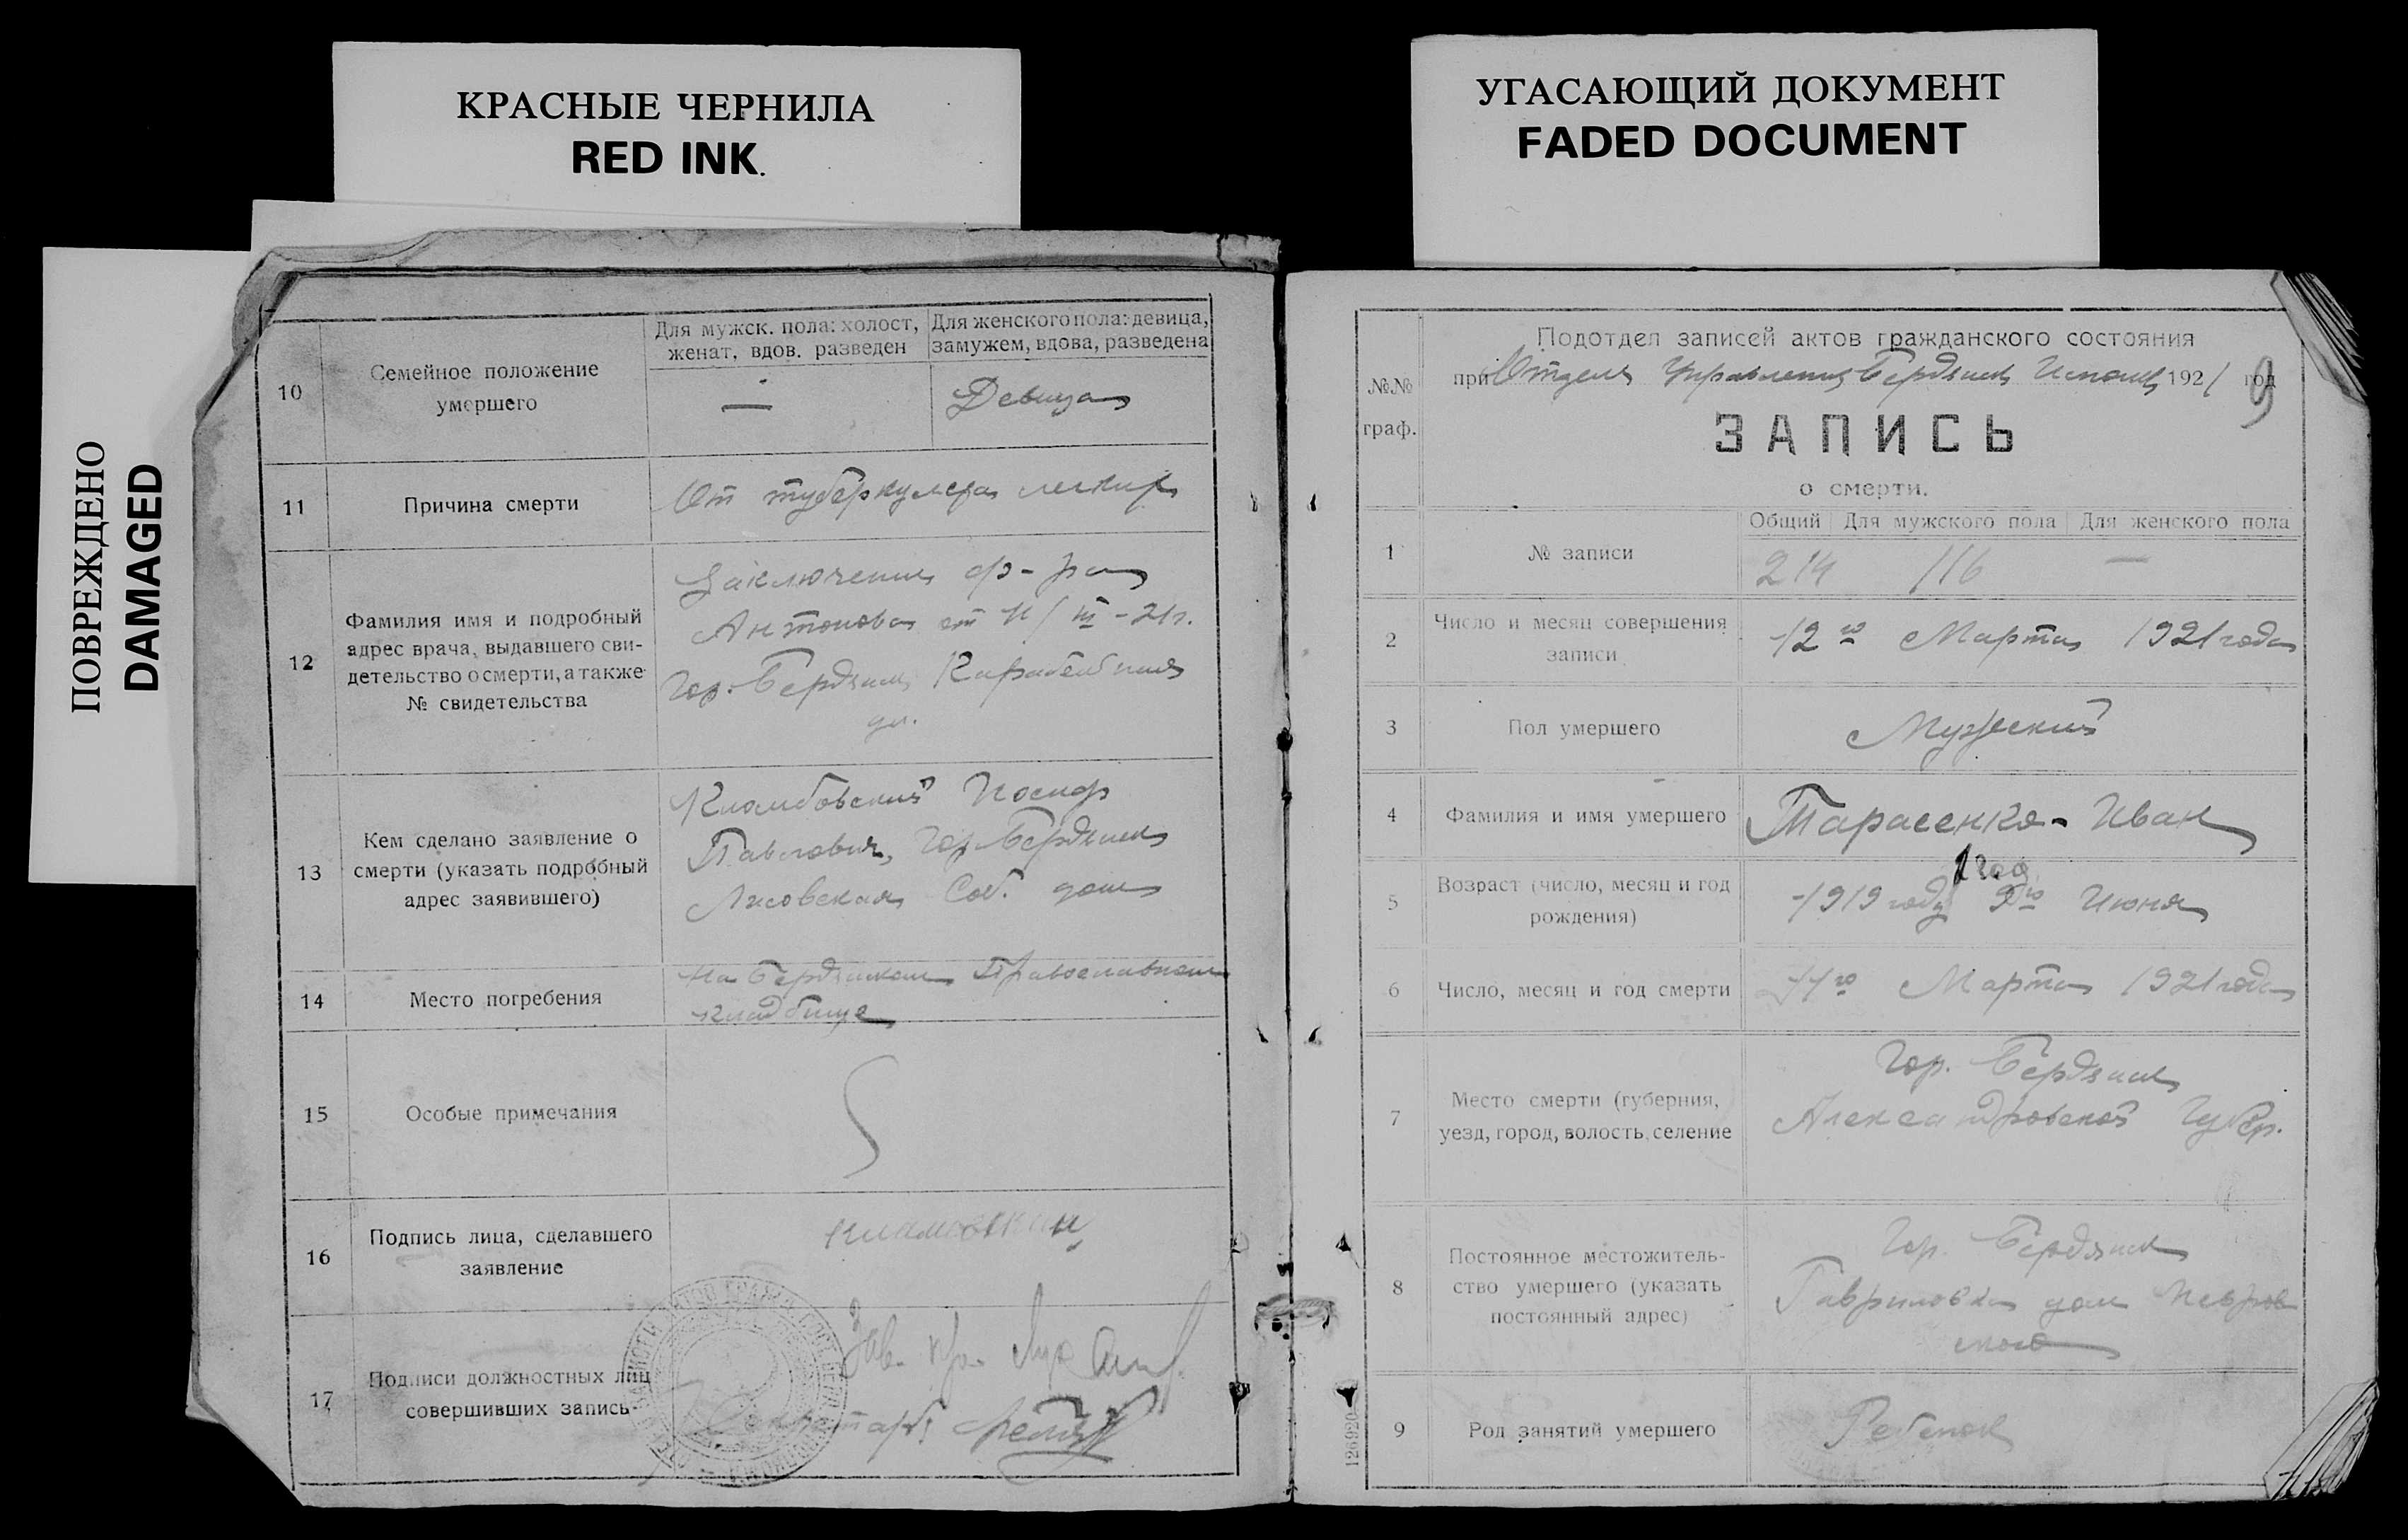 КРАСНЫЕ ЧЕРНИЛА
RED INK.
УГАСАЮЩИЙ ДОКУМЕНТ
FADED DOCUMENT
ПОВРЕЖДЕНО
DAMAGED
10
Семейное положение
умершего
Для мужск. пола: холост,
женат, вдов. разведен
Для женского пола: девица,
замужем, вдова, разведена
—
Девица
11
Причина смерти
От туберкулеза легких
12
Фамилия имя и подробный
адрес врача, выдавшего сви-
детельство о смерти, а также
№ свидетельства
Заключение д-ра
Антонова от 11/III-21г.
Гор. Бердянск
ул.
13
Кем сделано заявление о
смерти (указать подробный
адрес заявившего)
Иосиф
Павлович, Гор Бердянск
Лисовская Соб. дом
14
Место погребения
На Бердянском Православном
кладбище
15
Особые примечания
16
Подпись лица, сделавшего
заявление
17
Подписи должностных лиц
совершивших запись
Секретарь
№№
граф.
Подотдел записей актов гражданского состояния
при Отделе Управления Бердянск Исполк 1921 год
9
ЗАПИСЬ
о смерти.
1
№ записи
Общий
Для мужского пола
Для женского пола
214
116
—
2
Число и месяц совершения
записи
12го Марта 1921 года
3
Пол умершего
Мужской
4
Фамилия и имя умершего
Тарасенко - Иван
5
Возраст (число, месяц и год
рождения)
1 год
1919 году 9го Июня
6
Число, месяц и год смерти
11го Марта 1921 года
7
Место смерти (губерния,
уезд, город, волость, селение
Гор. Бердянск
Александровской Губер.
8
Постоянное местожитель-
ство умершего (указать
постоянный адрес)
Гор. Бердянск
Гавриловка дом
9
Род занятий умершего
Ребенок
126920